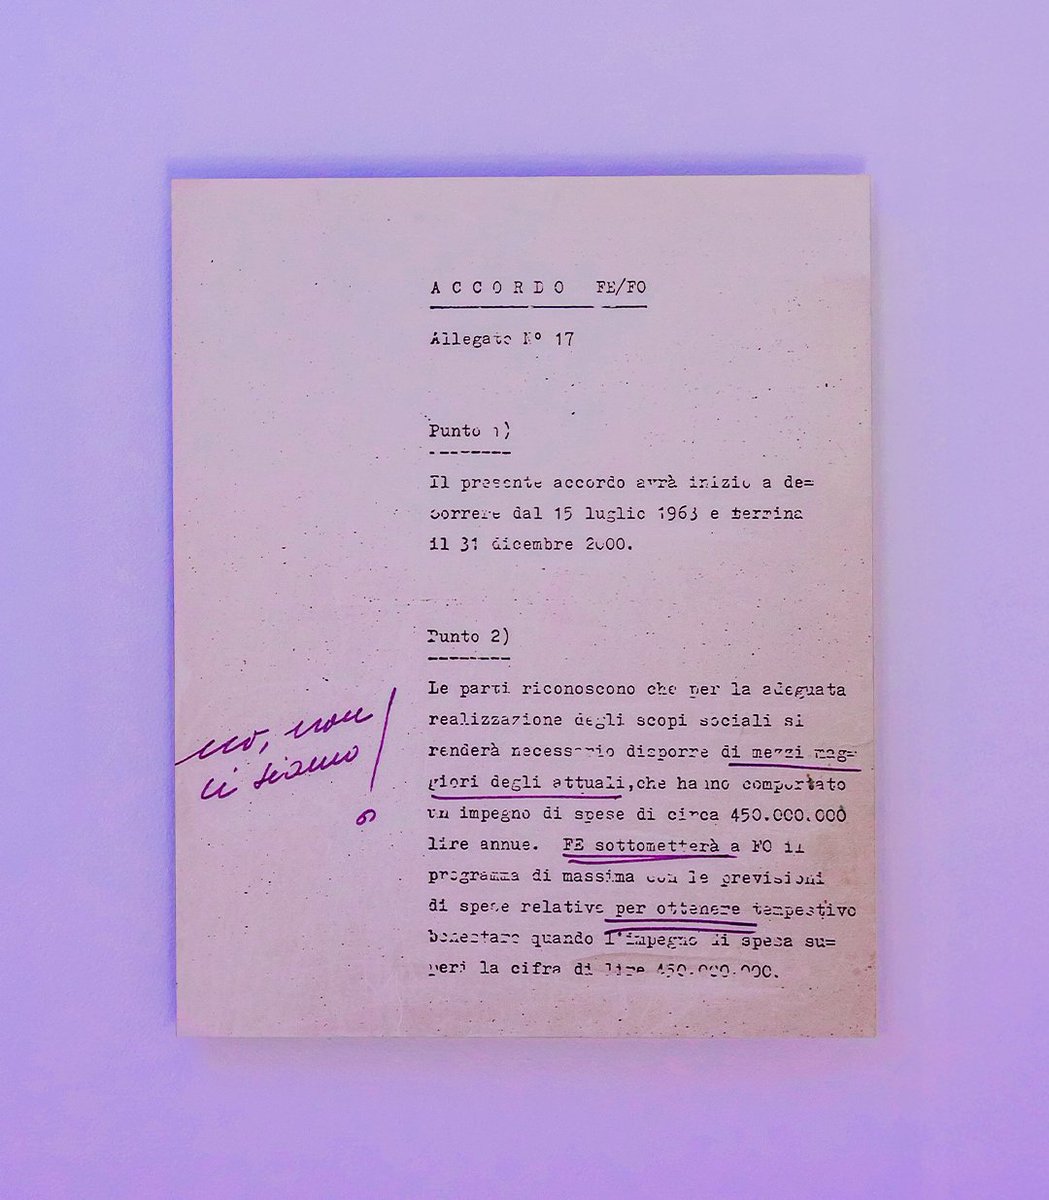 ACCORDO FE/FO
Allegato Nº 17
Punto 1)
Il presente accordo avrà inizio a de=
correre dal 15 luglio 1963 e termina
il 31 dicembre 2000.
Punto 2)
Le parti riconoscono che per la adeguata
realizzazione degli scopi sociali si
renderà necessario disporre di mezzi mag=
giori degli attuali,che hanno comportato
un impegno di spese di circa 450.000.000
lire annue. FE sottometterà a FO il
programma di massima con le previsioni
di spese relative per ottenere tempestivo
benestare quando l'impegno di spesa su=
peri la cifra di lire 450.000.000.
no, non
ci siamo!